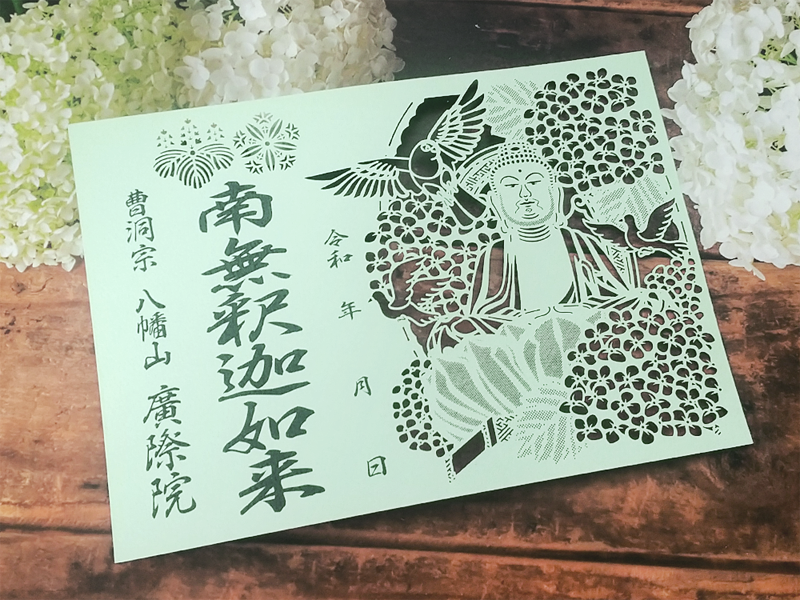 令和　年　月　日
南無釈迦如来
曹洞宗　八幡山　廣際院